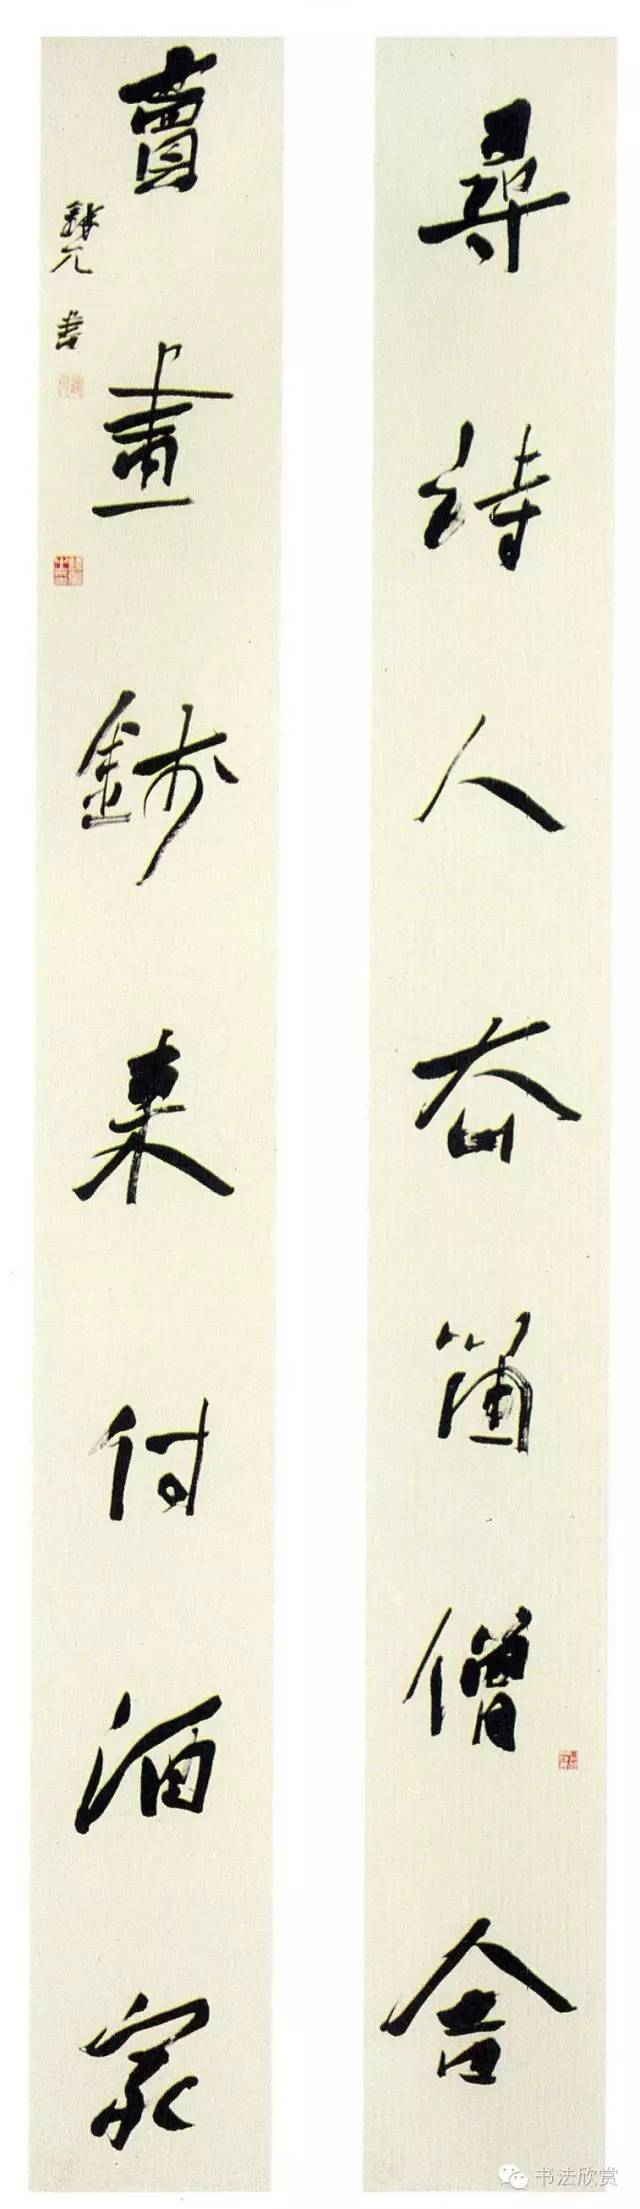 尋詩人去留僧舍
賣畫錢來付酒家
書
书法欣赏